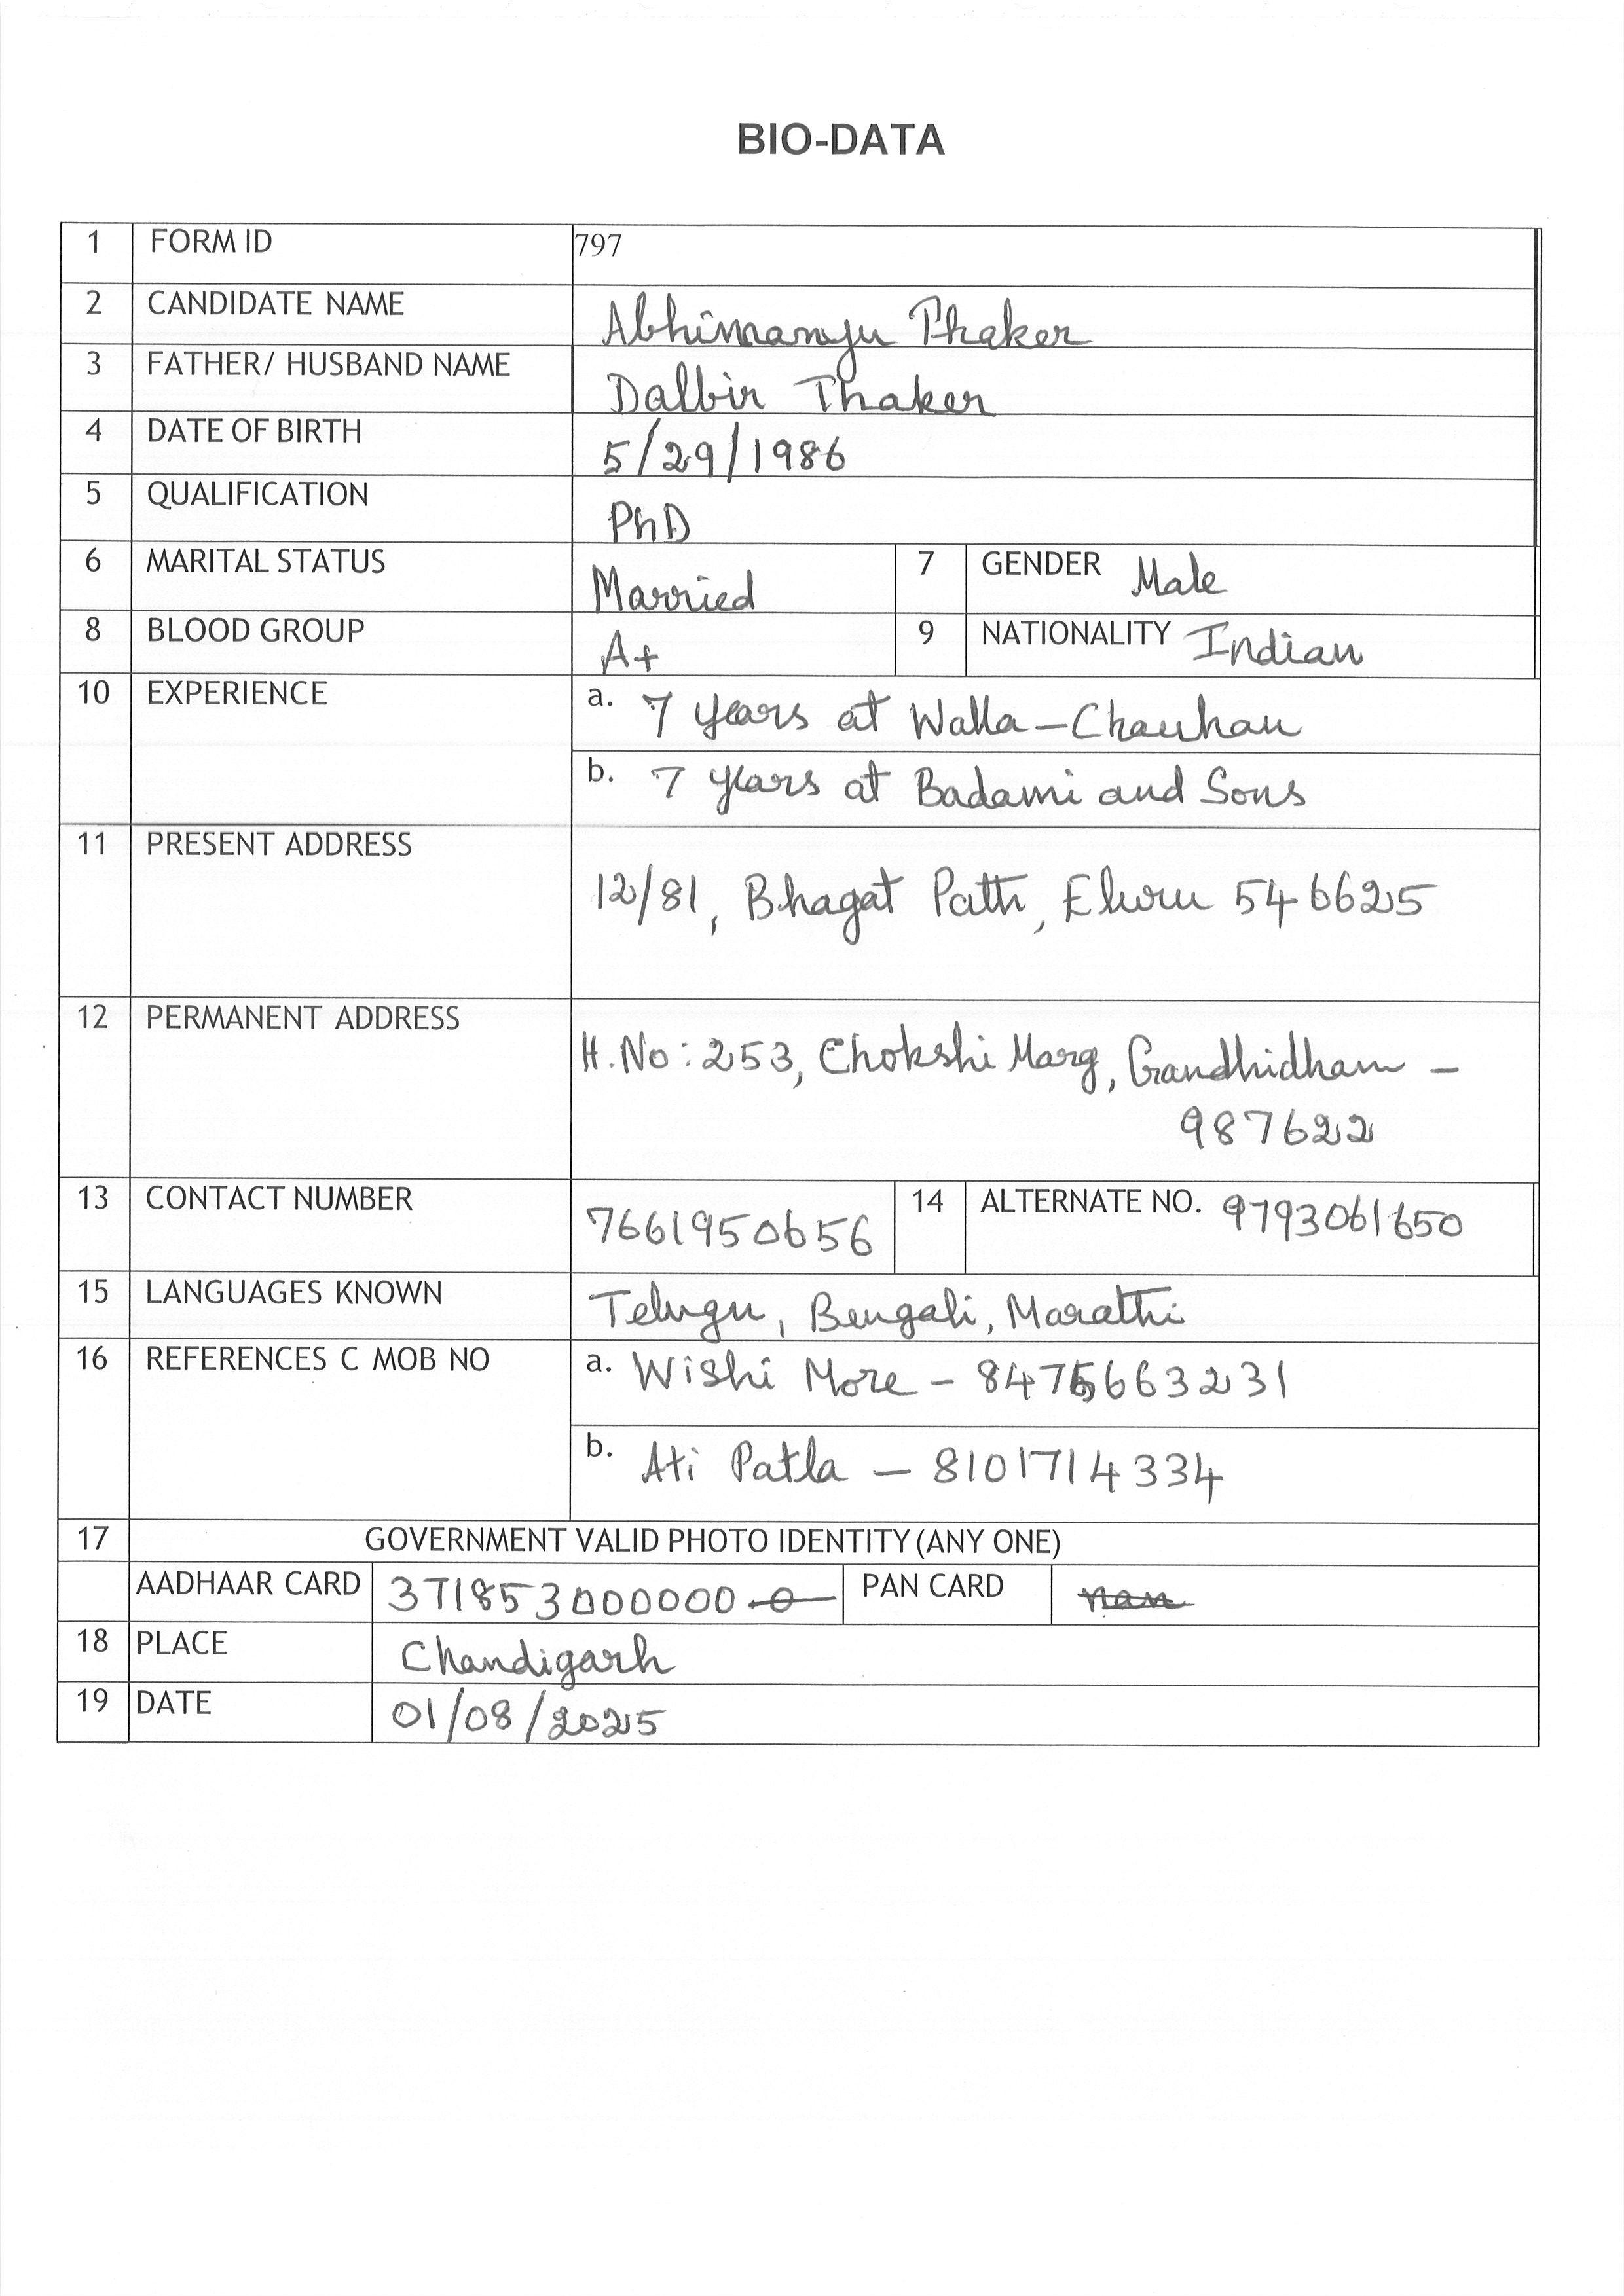 BIO-DATA
1 FORM ID 797
2 CANDIDATE NAME Abhimanyu Thaker
3 FATHER/ HUSBAND NAME Dalbir Thaker
4 DATE OF BIRTH 5/29/1986
5 QUALIFICATION PhD
6 MARITAL STATUS Married 7 GENDER Male
8 BLOOD GROUP A+ 9 NATIONALITY Indian
10 EXPERIENCE a. 7 years at Walla-Chauhan
b. 7 years at Badami and Sons
11 PRESENT ADDRESS
12/81, Bhagat Path, Eluru 546625
12 PERMANENT ADDRESS
H.No: 253, Chokshi Marg, Gandhidham -
987622
13 CONTACT NUMBER 7661950656 14 ALTERNATE NO. 9793061650
15 LANGUAGES KNOWN Telugu, Bengali, Marathi
16 REFERENCES C MOB NO a. Wishi More - 8475663231
b. Ati Patla - 8101714334
17 GOVERNMENT VALID PHOTO IDENTITY (ANY ONE)
AADHAAR CARD 371853000000 PAN CARD nan
18 PLACE Chandigarh
19 DATE 01/08/2025